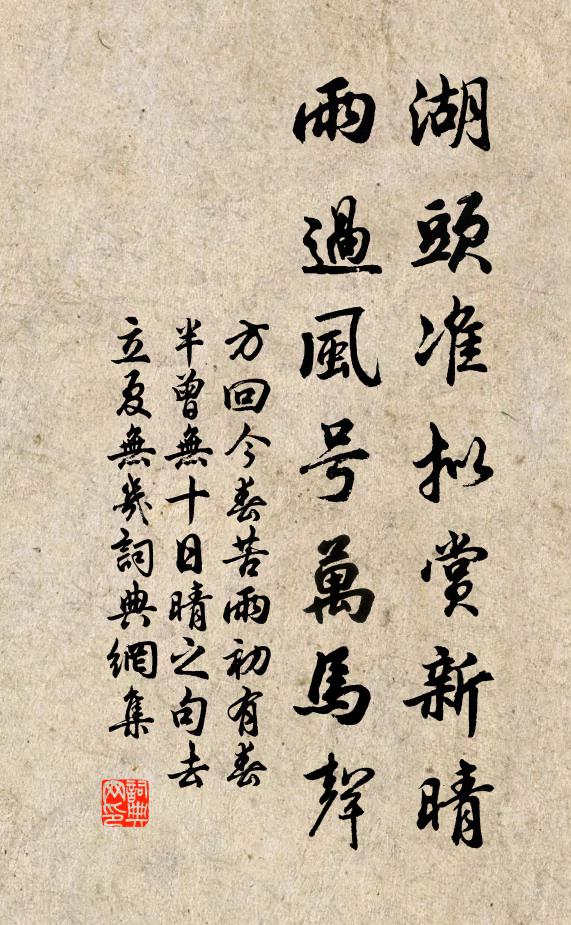 湖頭准拟赏新晴
雨過風号萬馬聲
方回今春苦雨初有春
半曾無十日晴之句去
立夏無幾詞典網集
詞典
网印